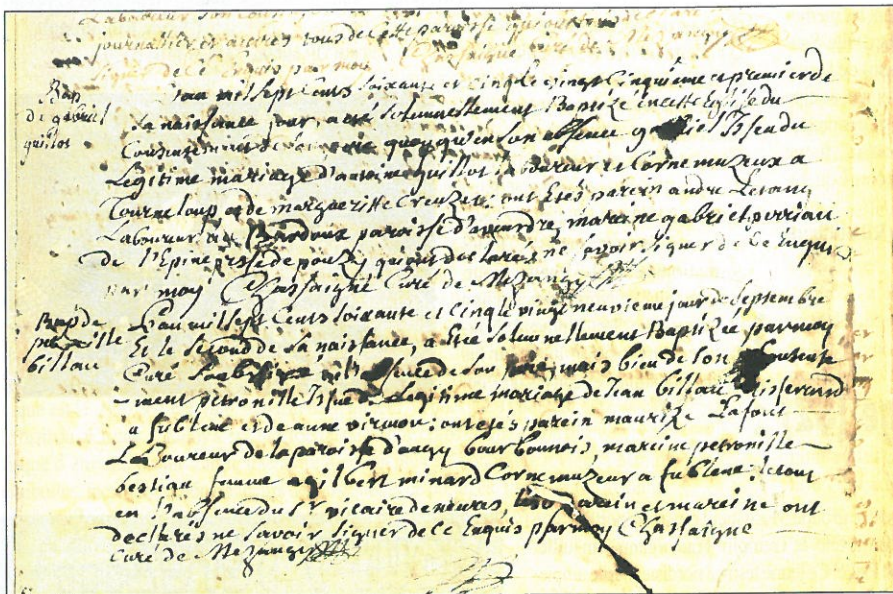 Laboureur son
journallier et autres tous de cette paroisse qui ont déclaré
signer de ce Enquis par moy Chassaigne Curé de Mezangy
Bap
de gabriel
guillot
L'an mil sept Cents soixante et Cinq le vingt Cinquième et premier de
sa naissance jour, a été solemnellement Baptizé en cette Eglise du
Consentement de quoy qu'en son absence gabriel Issu du
Legitime mariage d'antoine guillot Laboureur et Cornemuzeux a
Tourneloup et de margueritte Creuzet: ont Etés parein andre
Laboureur a Bardoux paroisse d' mareine gabriel perriau
de l'Epine psse de pouzy qui ont declarés ne sçavoir signer de ce Enquis
par moy Chassaigné Curé de Mezangy
Bap de
petronille
billaut
L'an mil sept Cents soixante et Cinq le vingt neuvieme jour de septembre
Et le second de sa naissance, a Eté solemnellement Baptizée par moy
Curé en l'absence de son mais bien de son Consente
-ment petronille Issue du Legitime mariage de Jean billaut tisserand
a fublene et de anne virmon: ont etés parein maurize Lafont
Laboureur de la paroisse d'augy bourbonnois, mareine petronille
bestian femme a gilbert minard Cornemuzeur a fublene: le tout
en l'absence du Sr vicaire de neures, Les parein et mareine ont
declarés ne savoir signer de ce Enquis par moy Chassaigne
Curé de Mezangy